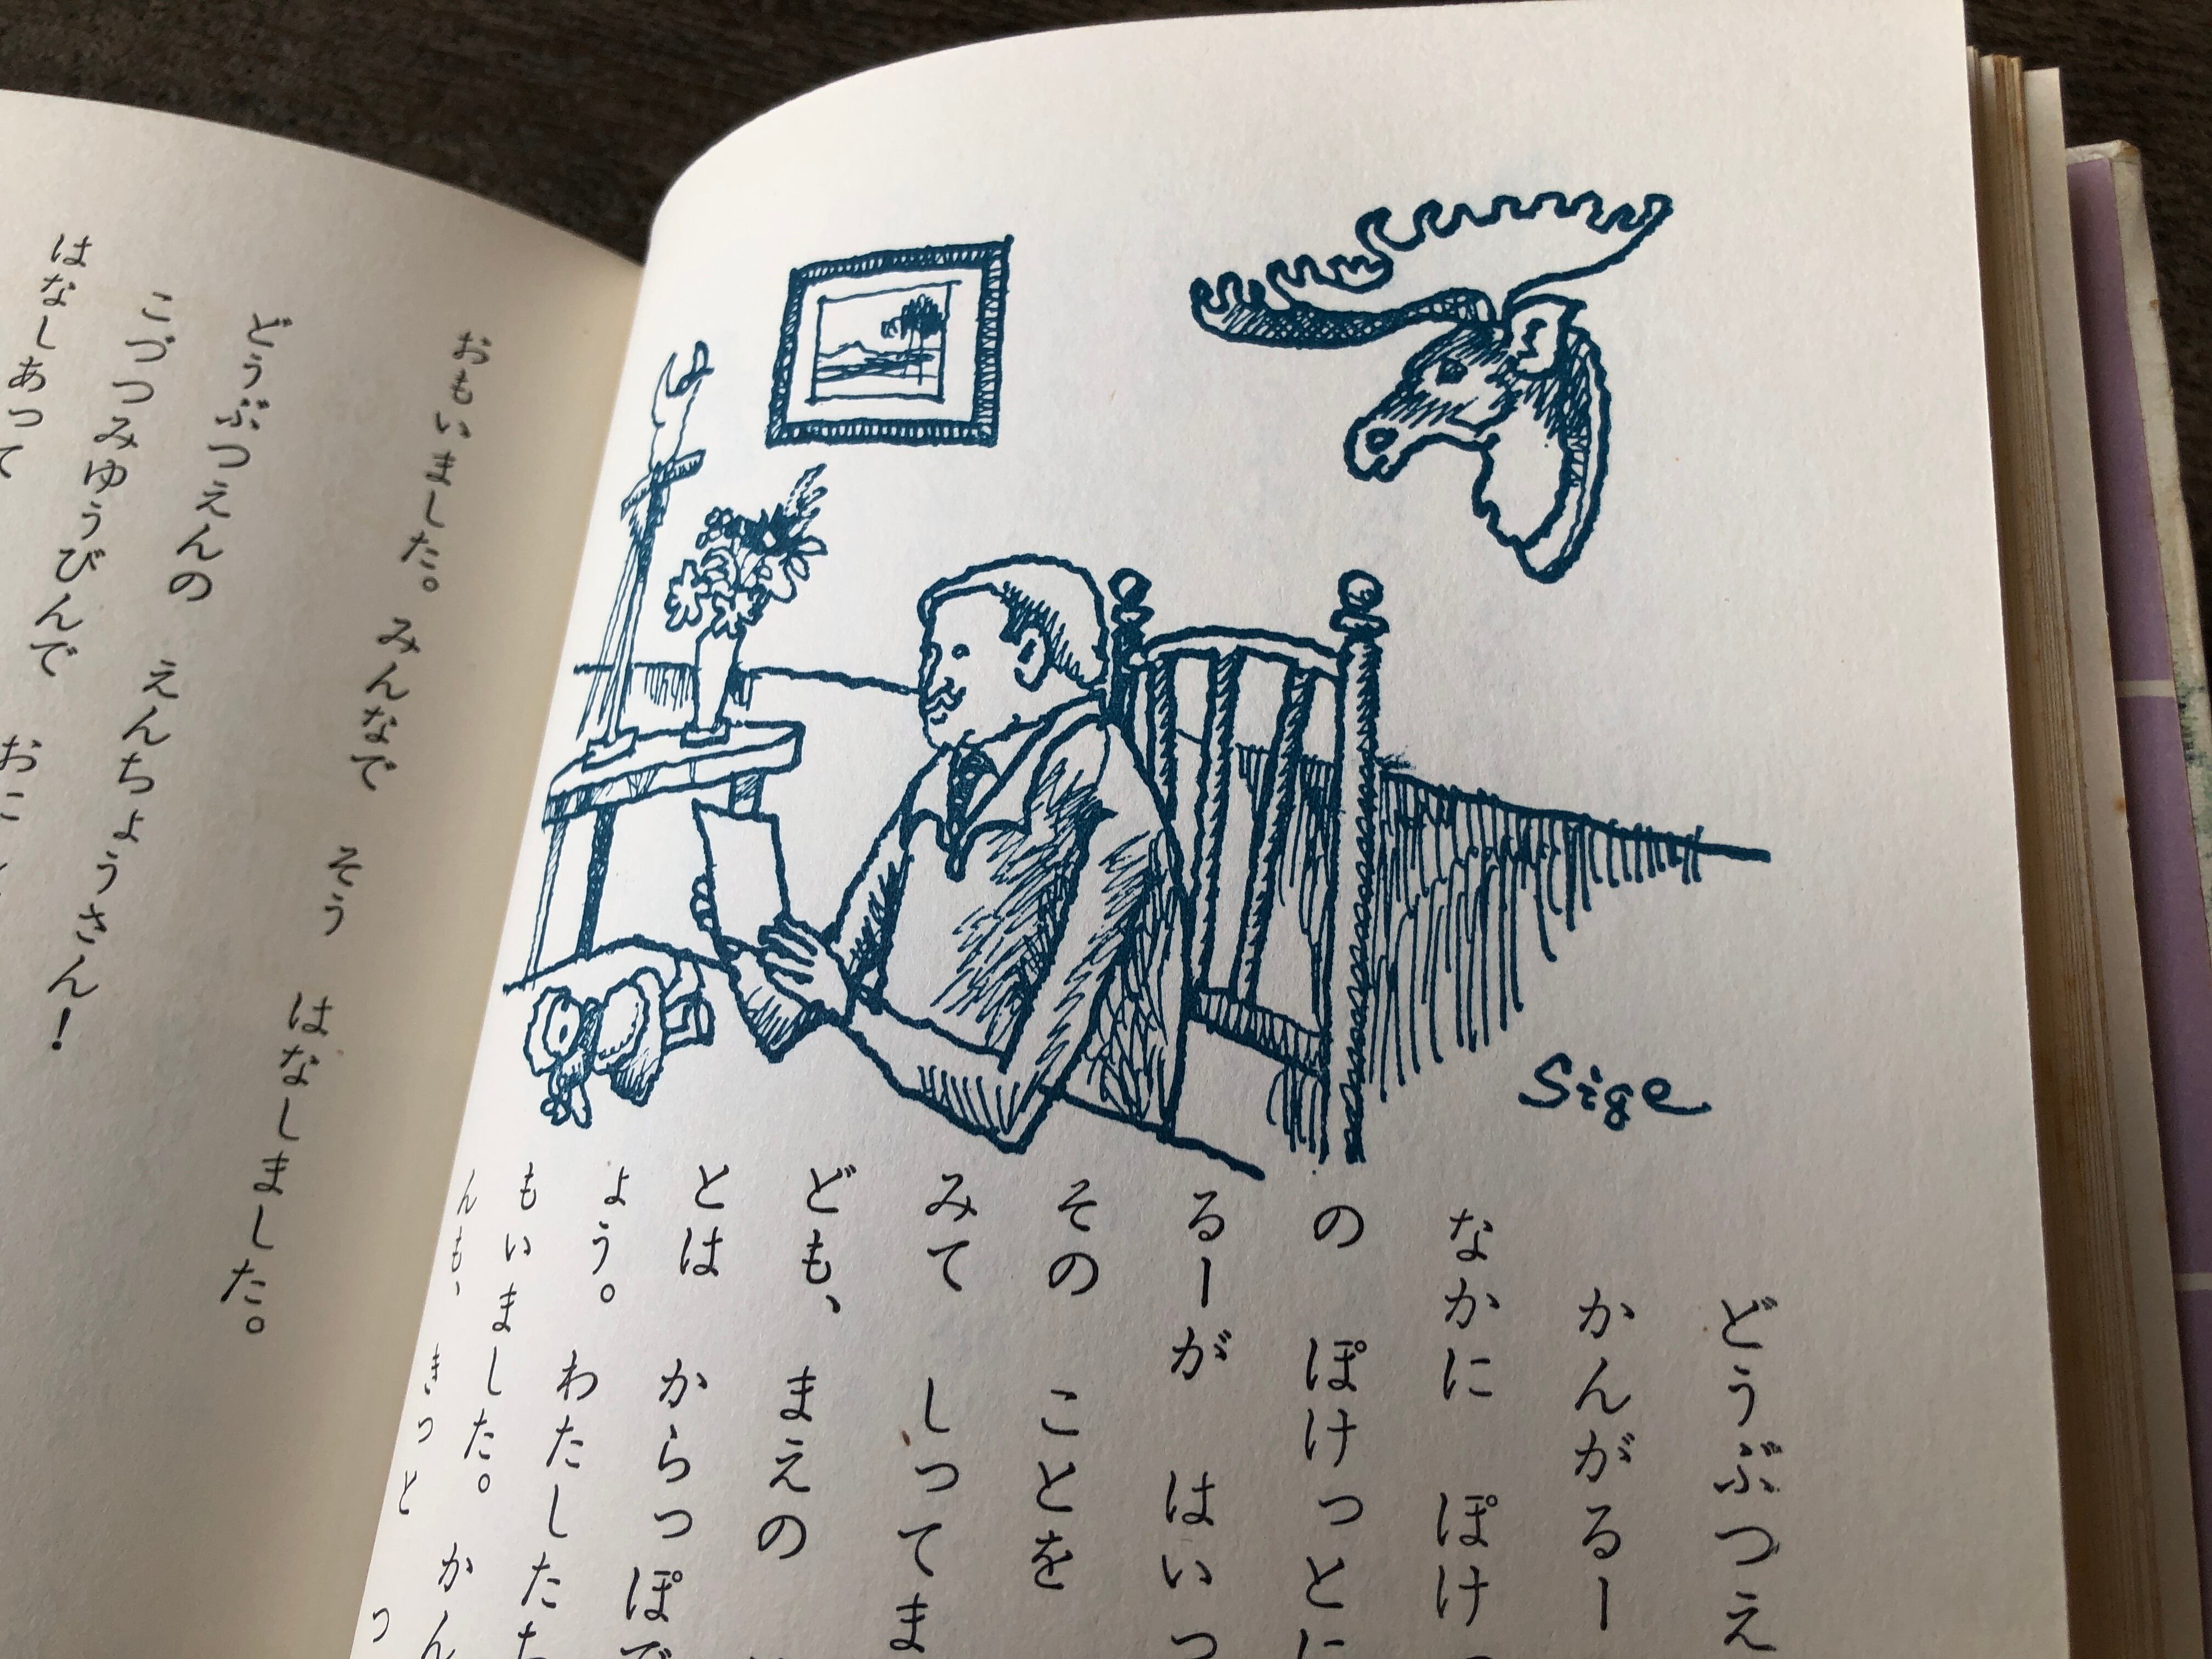 おもいました。みんなで そう はなしました。
どうぶつえんの えんちょうさん!
こづつみゆうびんで
はなしあって
Sige
どうぶつえ
かんがるー
なかに ぽけ
の ぽけっとに
るーが はいつ
その ことを
みて しってま
ども、 まえの
とは からっぽで
ょう。 わたした
もいました。
んも、 きっと かん